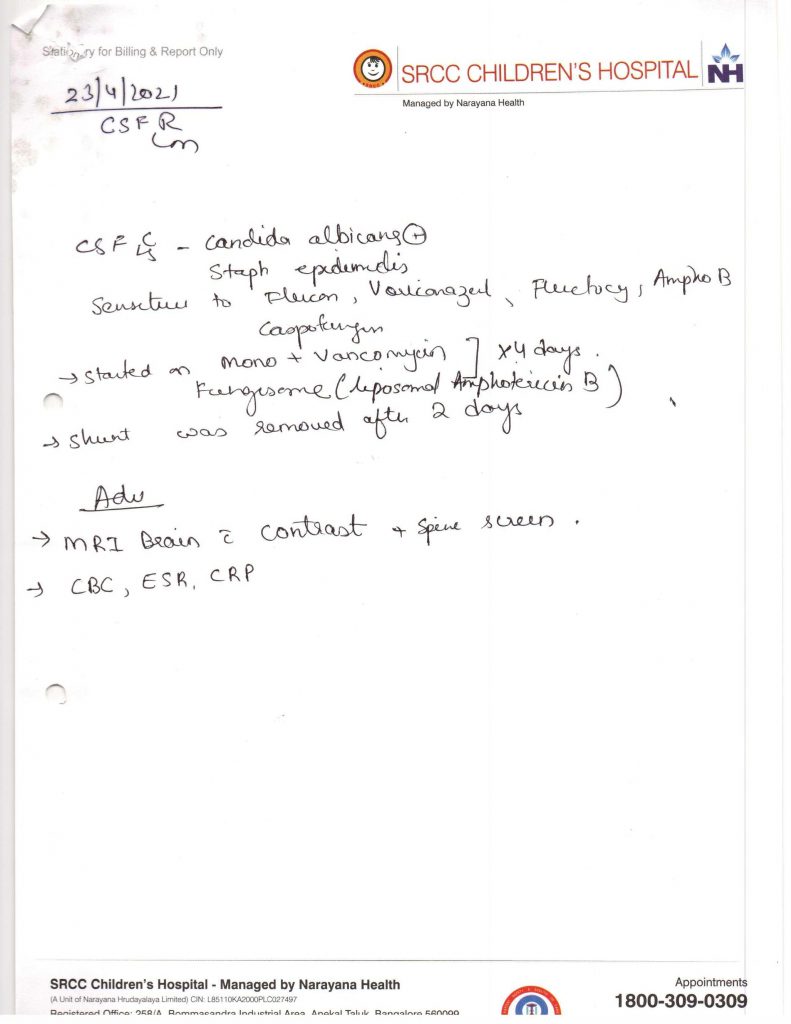 Stationery for Billing & Report Only
SRCC CHILDREN'S HOSPITAL NH
Managed by Narayana Health
23/4/2021
CSF R
m
CSF C/S - Candida albicans +
Staph epidermidis
Sensitive to Flucon, Voriconazol, Fluctocy, Ampho B
Caspofungin
→ started on Mono + Vancomycin ] x4 days.
Fungisome (liposomal Amphotericin B)
→ shunt was removed after 2 days
Adv
→ MRI Brain c̄ contrast + Spine screen.
→ CBC, ESR, CRP
SRCC Children's Hospital - Managed by Narayana Health
(A Unit of Narayana Hrudayalaya Limited) CIN: L85110KA2000PLC027497
Registered Office: 258/A, Bommasandra Industrial Area, Anekal Taluk, Bangalore 560099
Appointments
1800-309-0309